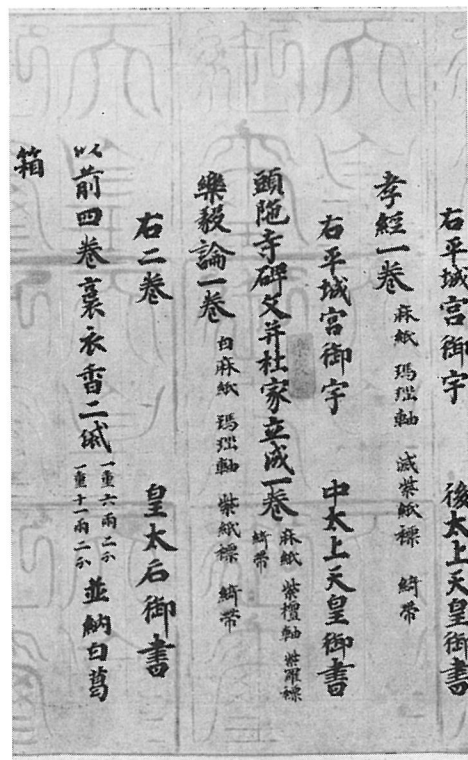 右平城宮御宇 後太上天皇御書
孝經一卷 麻紙 瑪瑙軸 滅紫紙褾 綺帶
右平城宮御宇 中太上天皇御書
頭陁寺碑文并杜家立成一卷 麻紙 紫檀軸 紫羅褾 綺帶
樂毅論一卷 白麻紙 瑪瑙軸 紫紙褾 綺帶
右二卷 皇太后御書
以前四卷 裛衣香二袋 一重六兩二分 一重十一兩二分 並納白葛
箱